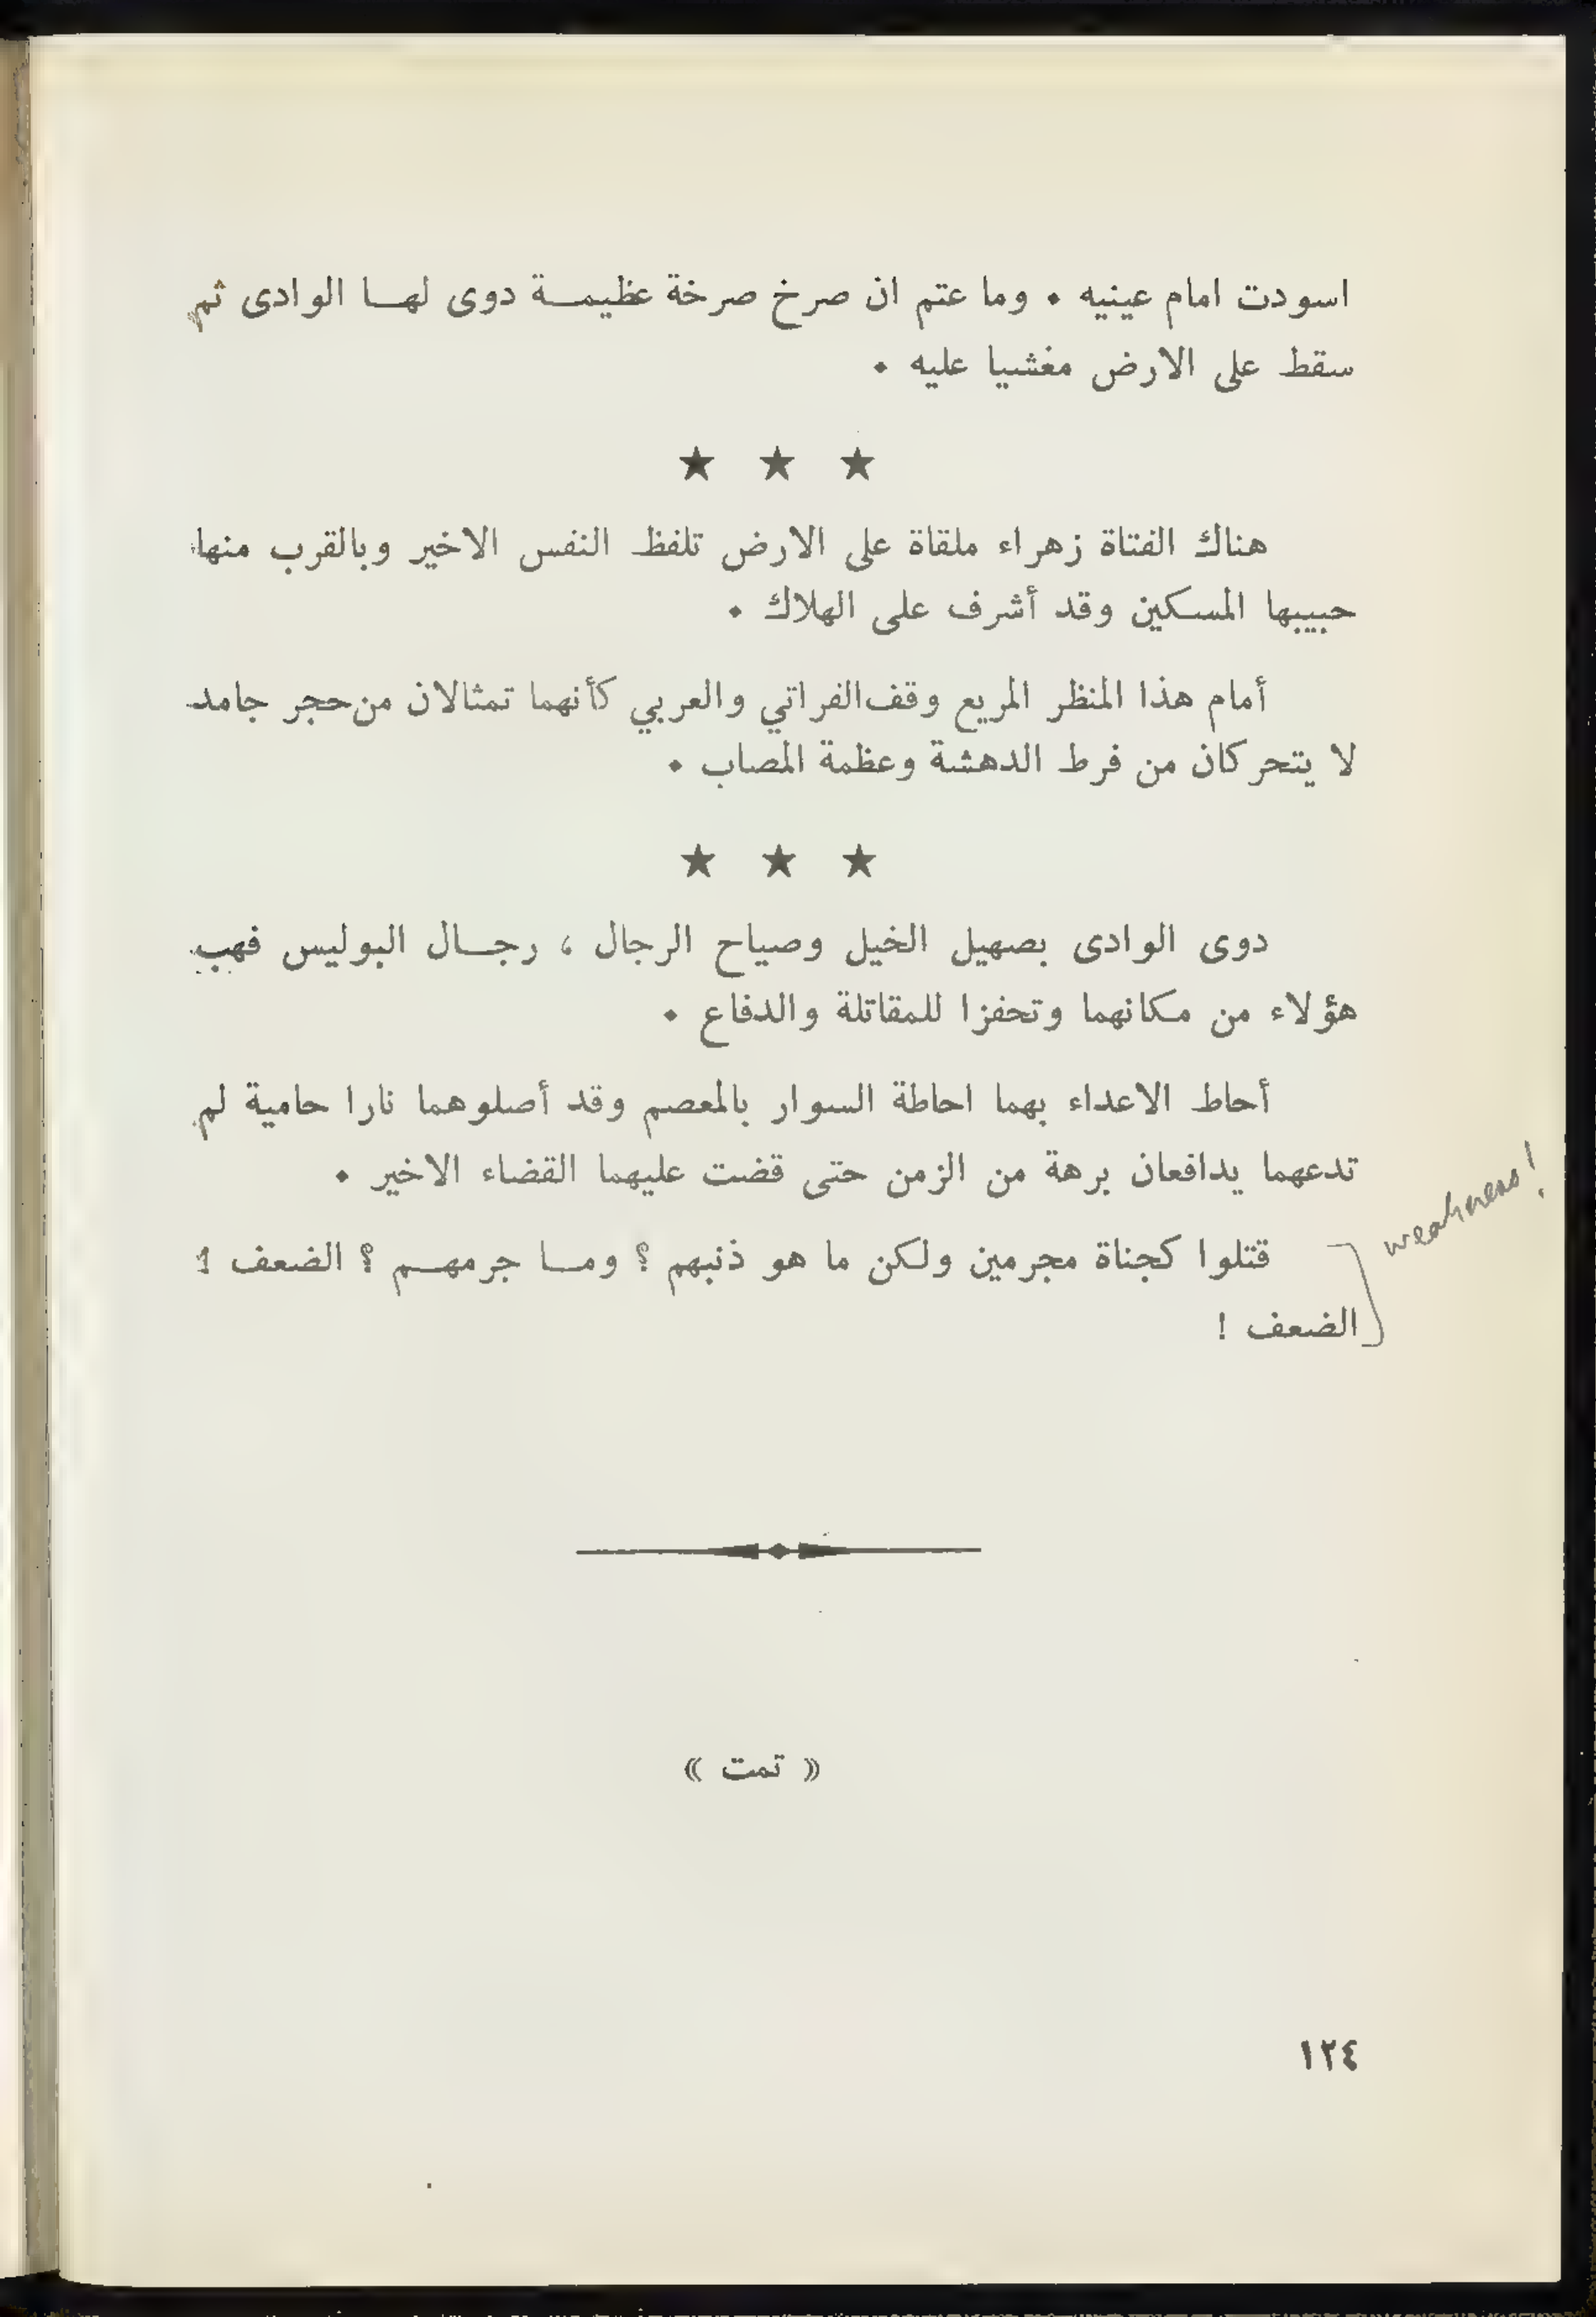 اسودت امام عينيه . وما عتم ان صرخ صرخة عظيمة دوى لها الوادى ثم
سقط على الارض مغشيا عليه .
★ ★ ★
هناك الفتاة زهراء ملقاة على الارض تلفظ النفس الاخير وبالقرب منها
حبيبها المسكين وقد أشرف على الهلاك .
أمام هذا المنظر المريع وقف الفراتي والعربي كأنهما تمثالان من حجر جامد
لا يتحركان من فرط الدهشة وعظمة المصاب .
★ ★ ★
دوى الوادى بصهيل الخيل وصياح الرجال ، رجال البوليس فهب
هؤلاء من مكانهما وتحفزا للمقاتلة والدفاع .
أحاط الاعداء بهما احاطة السوار بالمعصم وقد أصلوهما نارا حامية لم
تدعهما يدافعان برهة من الزمن حتى قضت عليهما القضاء الاخير .
قتلوا كجناة مجرمين ولكن ما هو ذنبهم ؟ وما جرمهم ؟ الضعف !
الضعف !
weakness!
« تمت »
١٢٤